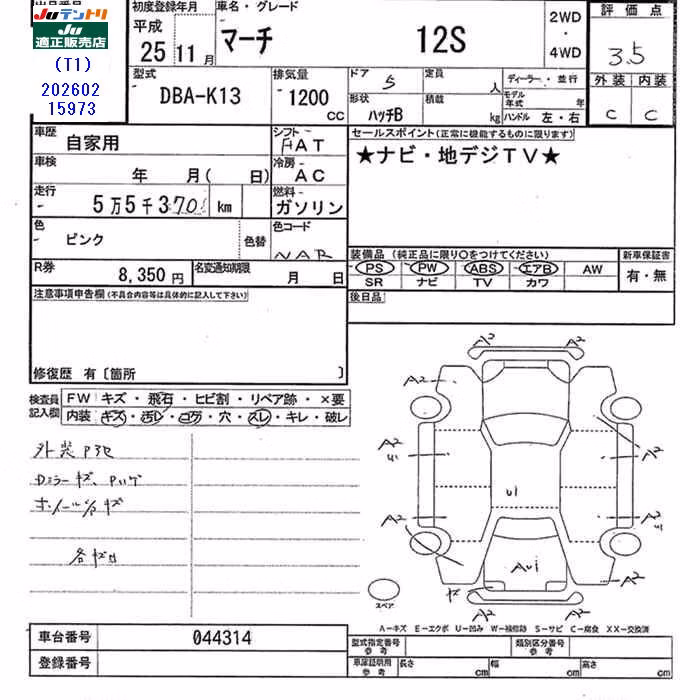 出品番号
Juテントリ
Ju
適正販売店
(T1)
202602
15973
初度登録年月
平成
25 11 月
車名・グレード
マーチ 12S
2WD
・
4WD
評価点
3.5
外装 内装
C C
型式
DBA-K13
排気量
1200
cc
ドア 5
定員 人
ディーラー・並行
形状 ハッチB
積載 kg
モデル年式 年
ハンドル 左・右
車歴 自家用
シフト FAT
車検 年 月( 日)
冷房 AC
走行 5万5千370 km
燃料 ガソリン
色 ピンク 色替
色コード NAR
R券 8,350 円
名変通知期限 月 日
セールスポイント(正常に機能するものに限ります)
★ナビ・地デジTV★
装備品(純正品に限り○をつけてください)
新車保証書
PS PW ABS エアB AW
SR ナビ TV カワ
有・無
後日品
注意事項申告欄(不具合内容等は具体的に記入して下さい)
修復歴 有〔箇所 〕
検査員記入欄
FW キズ・飛石・ヒビ割・リペア跡・×要
内装 キズ・汚レ・コゲ・穴・スレ・キレ・破レ
外装
Dミラーキズ、
ホイールキズ
各キズ凹
A2 A2
A2
A2
U1
A2
U1
A2
A2
U1
AU1
キズ
A2
A2 A2
スペア
A-キズ E-エクボ U-凹み W-補修跡 S-サビ C-腐食 XX-交換済
車台番号 044314
登録番号
型式指定番号 参考
類別区分番号 参考
車庫証明用 参考
長さ cm 幅 cm 高さ cm